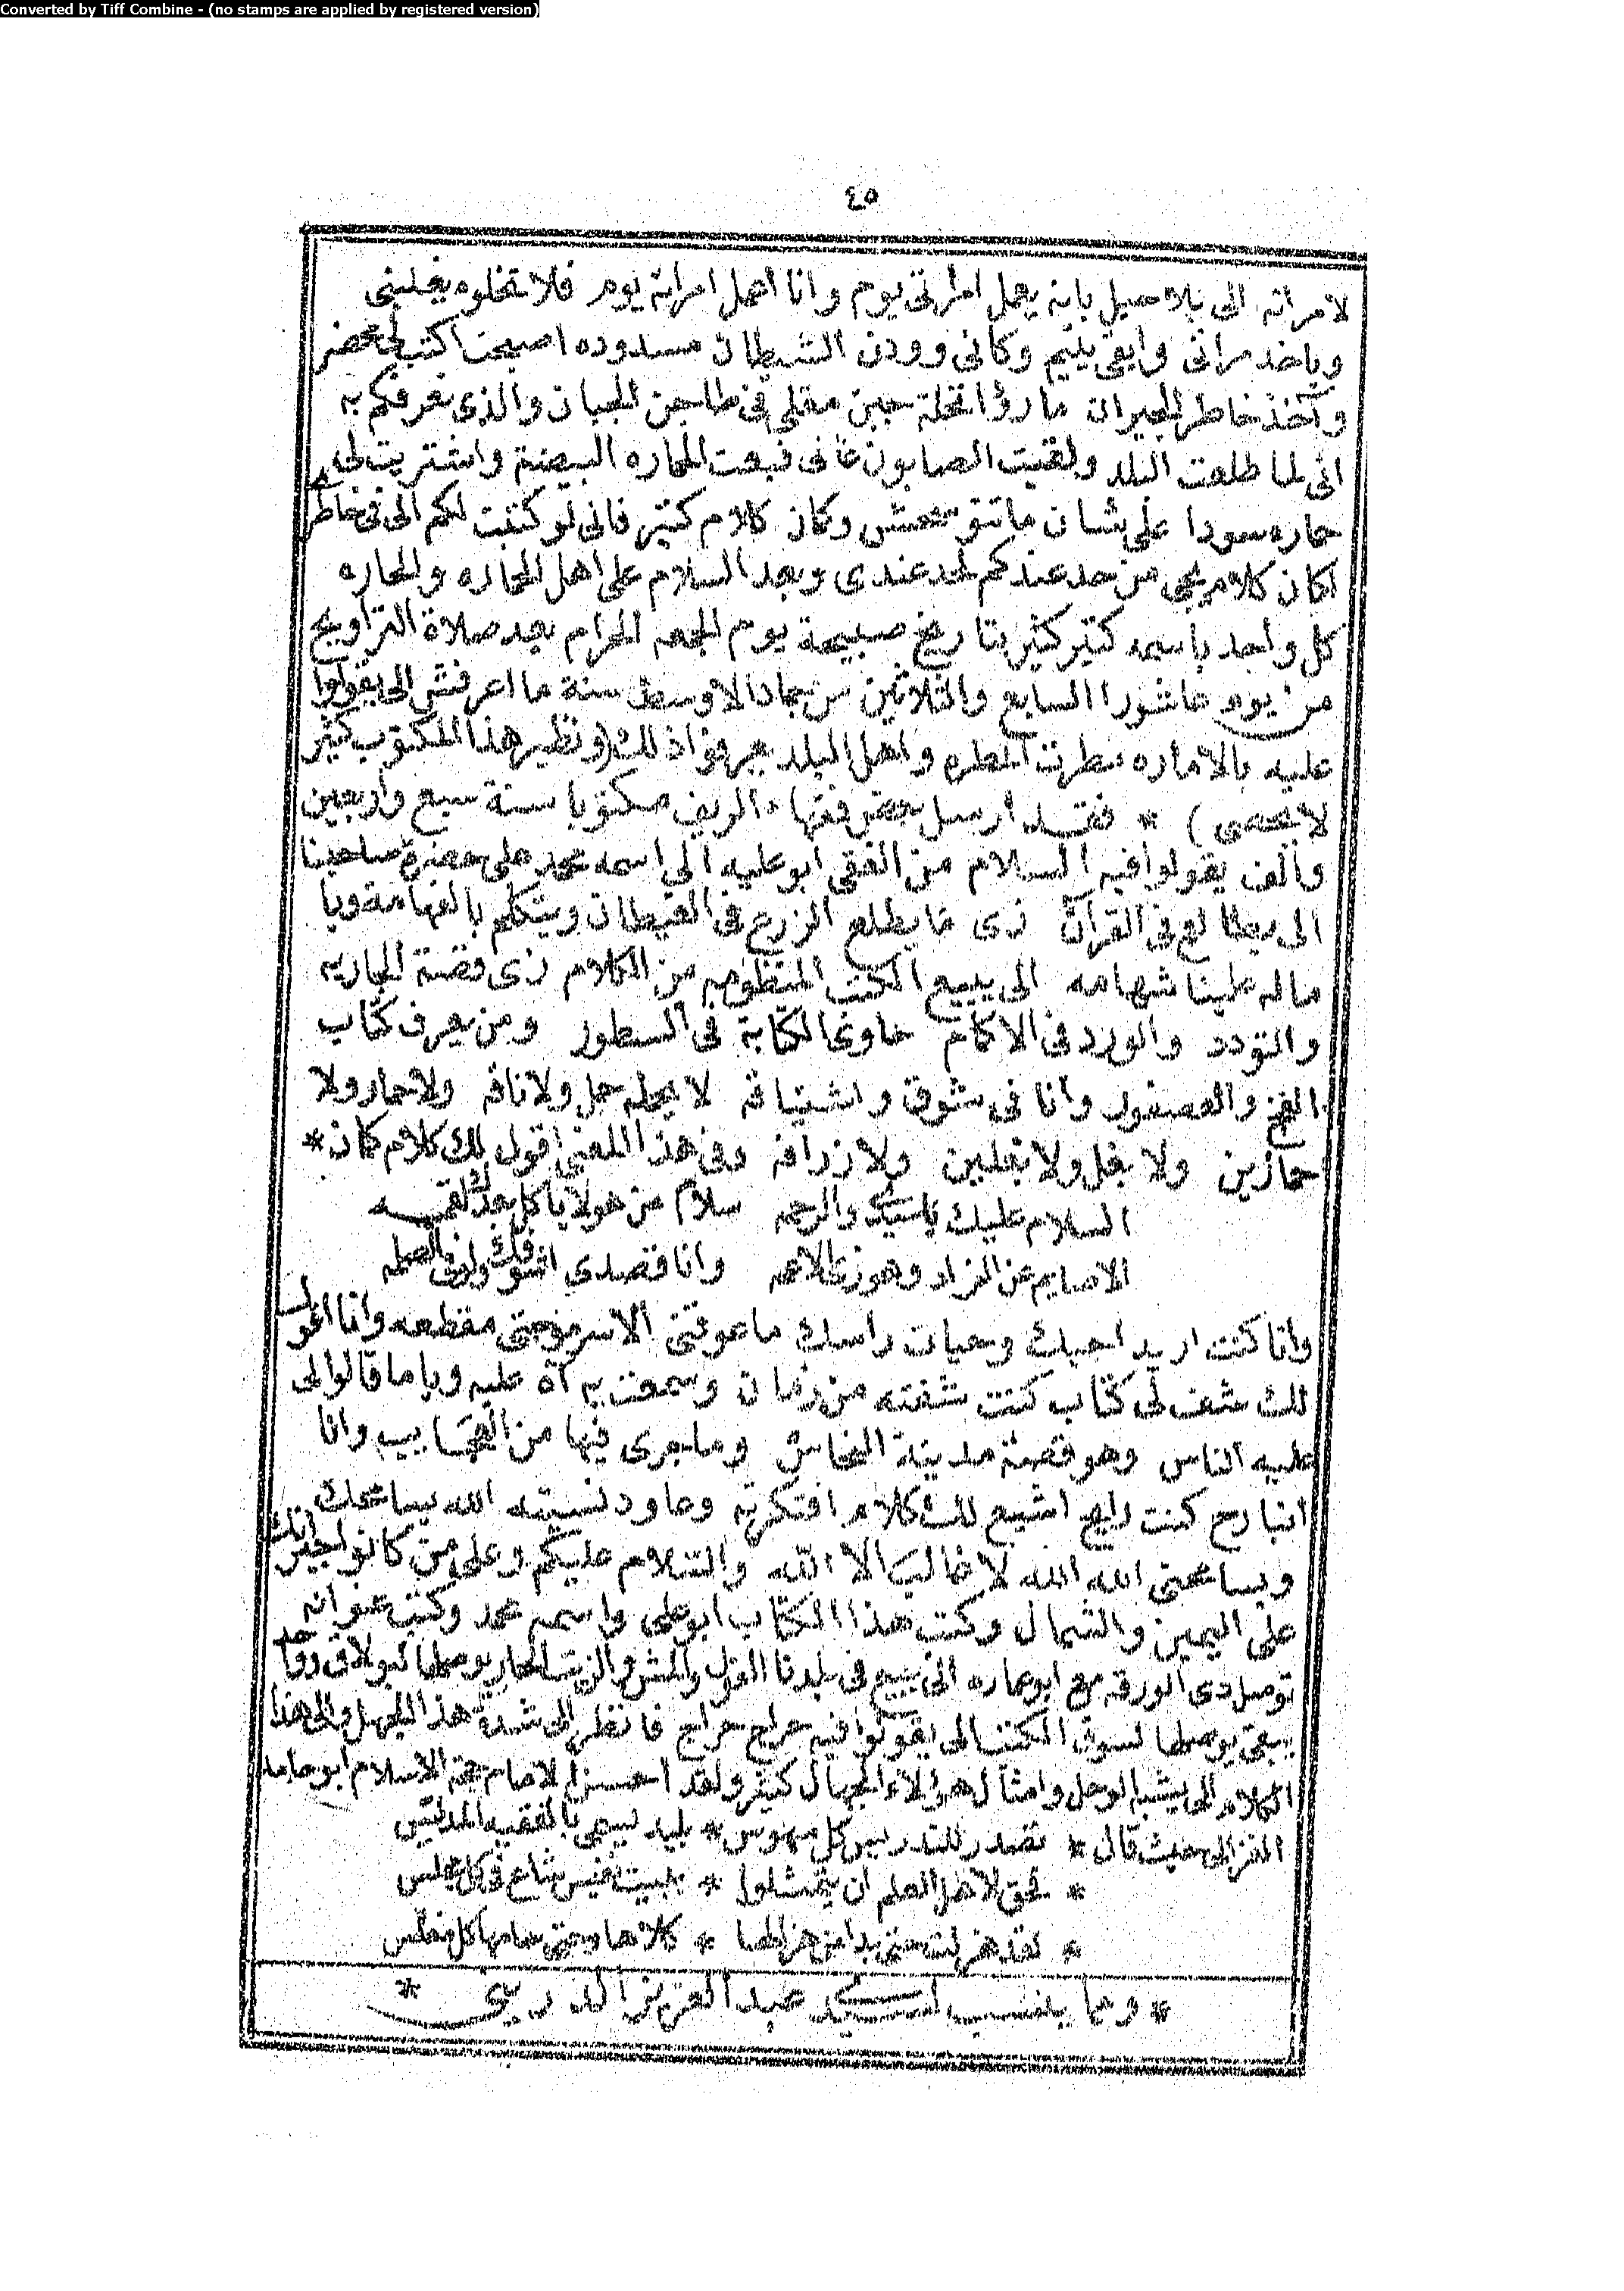 Converted by Tiff Combine - (no stamps are applied by registered version)
٤٥
لامراته الى بلا حبل بانه يحبل امراتى يوم وانا احبل امراته يوم فلا تخلوه يغلبنى
وياخد مراتى وابقى يتيم وكانى وودن الشيطان مسدوده اصبحت اكتب لى محضر
وآخذ خاطر الجيران مارؤا نخلة جبن مقلى فى طاجن الجبان والذى نعرفكم به
انى لما طلعت البلد ولقيت الصابون غالى فبعت الحماره البيضة واشتريت لى
حماره سودا على شان ماتتوسخش وكان كلام كتير فانى لو كتبت لكم الى فى خاطر
لكان كلام يجى من حد عندكم لحد عندى وبعد السلام على اهل الحاره والحاره
كل واحد باسمه كتير كثير بتاريخ صبيحة يوم الجمعه الحرام بعد صلاة التراويح
من يوم عاشورا السابع والثلاثين من جماد الاوسط سنة ما اعرفش الى يقولوا
عليه بالاماره مطرت المطره واهل البلد يعرفوا ذلك (ونظير هذا المكتوب كثير
لا يحصى) * فقد أرسل بعض فقهاء الريف مكتوبا سنة سبع واربعين
والف يقولوا فيه السلام من الفقى ابو عليه الى اسمه محمد على حضرة صاحبنا
الى يطالع فى القرآن زى ما يطلع الزرع فى الغيطان ويتكلم بالفهامة ويا
ماله علينا شهامه الى يبيع الكتب المنظومه من الكلام زى قصة الجاريه
والتودد والورد فى الاكمام حاوى الكتابة فى السطور ومن يعرف كتاب
الفخ والعصفور وانا فى شوق واشتياقه لا يحمله جمل ولا ناقه ولا حمار ولا
حمارين ولا بغل ولا بغلين ولا زرافه وفى هذا المعنى اقول لك كلام كان *
السلام عليك يا سيد والرحمه سلام من هو لا ياكل بعدك لقمه
الا صايم عن الزاد وهو زى الاعمه وانا قصدى اشوفك ولو فى العتمه
وانا كنت اريد اجيك وحيات راسك ماعوقنى الا سرموجتى مقطعه وانا اقول
لك شفت لى كتاب كنت شفته من زمان وسمعت به آه عليه ويا ما قالوا لى
عليه الناس وهو قصة مدينة النحاس وما جرى فيها من العجايب وانا
انبارح كنت رايح اشيع لك كلام افتكرته وعاود نسيته الله يسامحك
ويسامحنى الله الله لا غالب الا الله والسلام عليكم وعلى من كانوا جيرانك
على اليمين والشمال وكتب هذا الكتاب ابو على واسمه محمد وكتب عنوانه
توصل دى الورقه مع ابو عماره الى يبيع فى بلدنا الغزل والمش والزيت الحار يوصلها لبولاق
يبقى يوصلها لسوق الكتب الى يقولوا فيه حراج حراج فانظر الى شدة هذا الجهل والى هذا
الكلام الى يشبه الوحل وامثال هؤلاء الجهال كثير ولقد احسن الامام حجة الاسلام ابو حامد
الغزالى حيث قال * تصدر للتدريس كل مهوس * بليد يسمى بالفقيه المدرس
* فحق لاهل العلم ان يتمثلوا * ببيت نفيس شاع فى كل مجلس
* لقد هزلت حتى بدا من هزالها * كلاها وحتى سامها كل مفلس
* ومما ينسب لسيد عبد العزيز الدرينى *